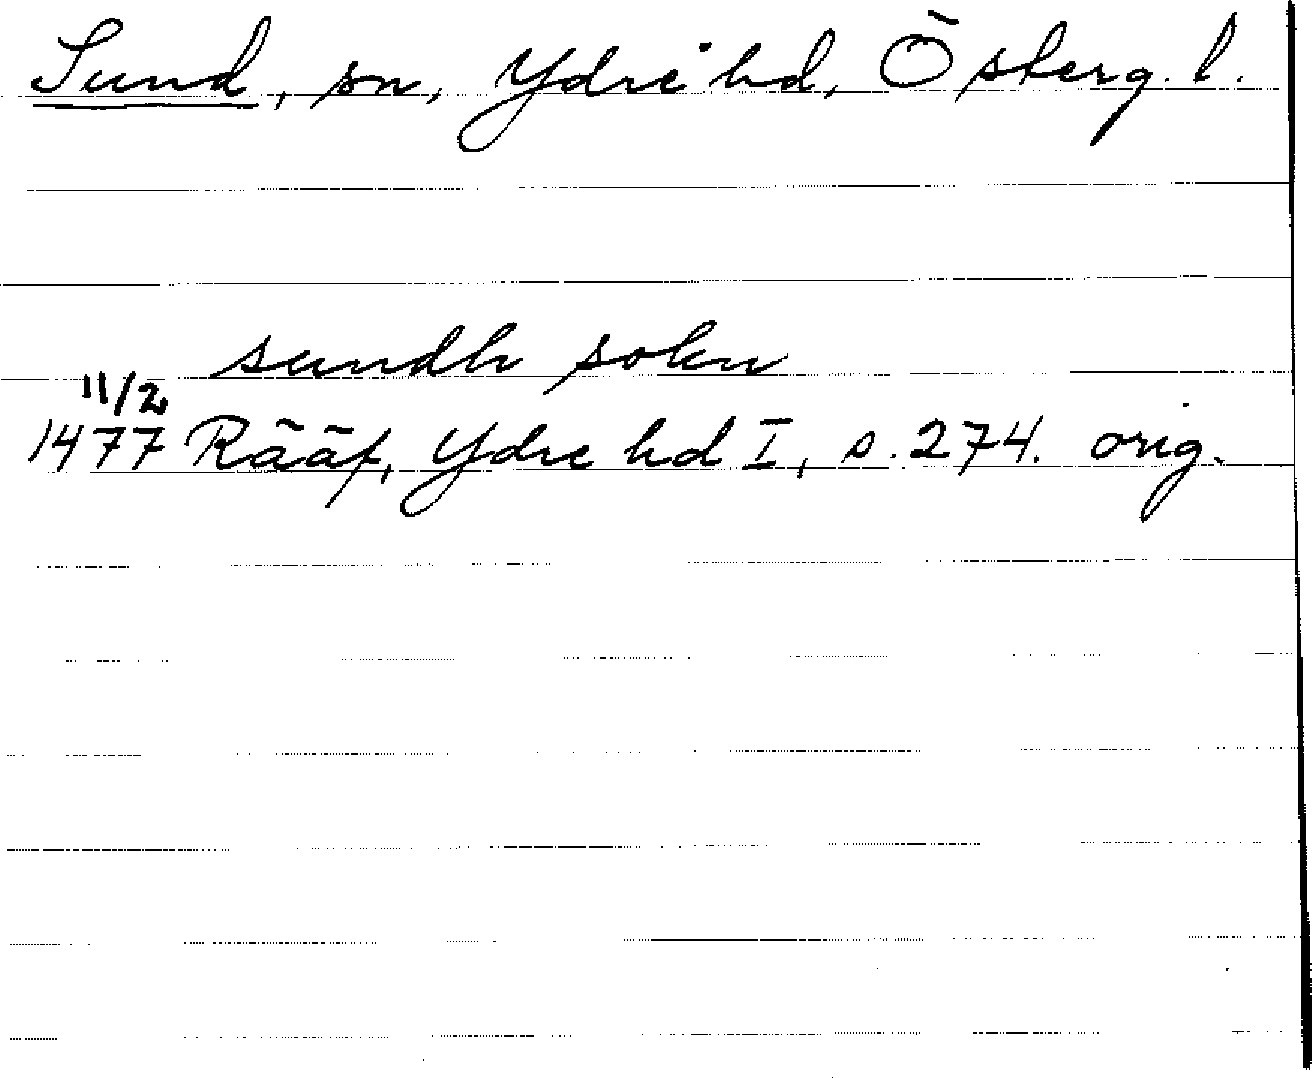 Sund, sn, Ydre hd, Österg. l.
sundh sokn
11/2
1477 Rääf, Ydre hd I, s. 274. orig.